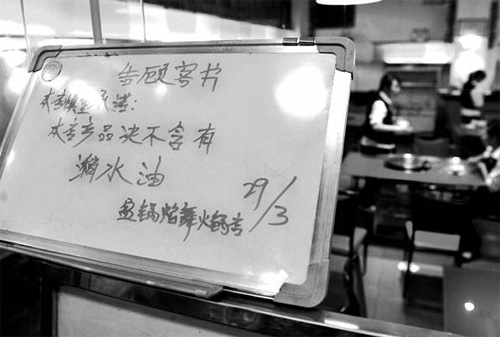 告顾客书
本店慎重承诺:
本店产品决不含有
潲水油
锅焰舞火锅店
29/3